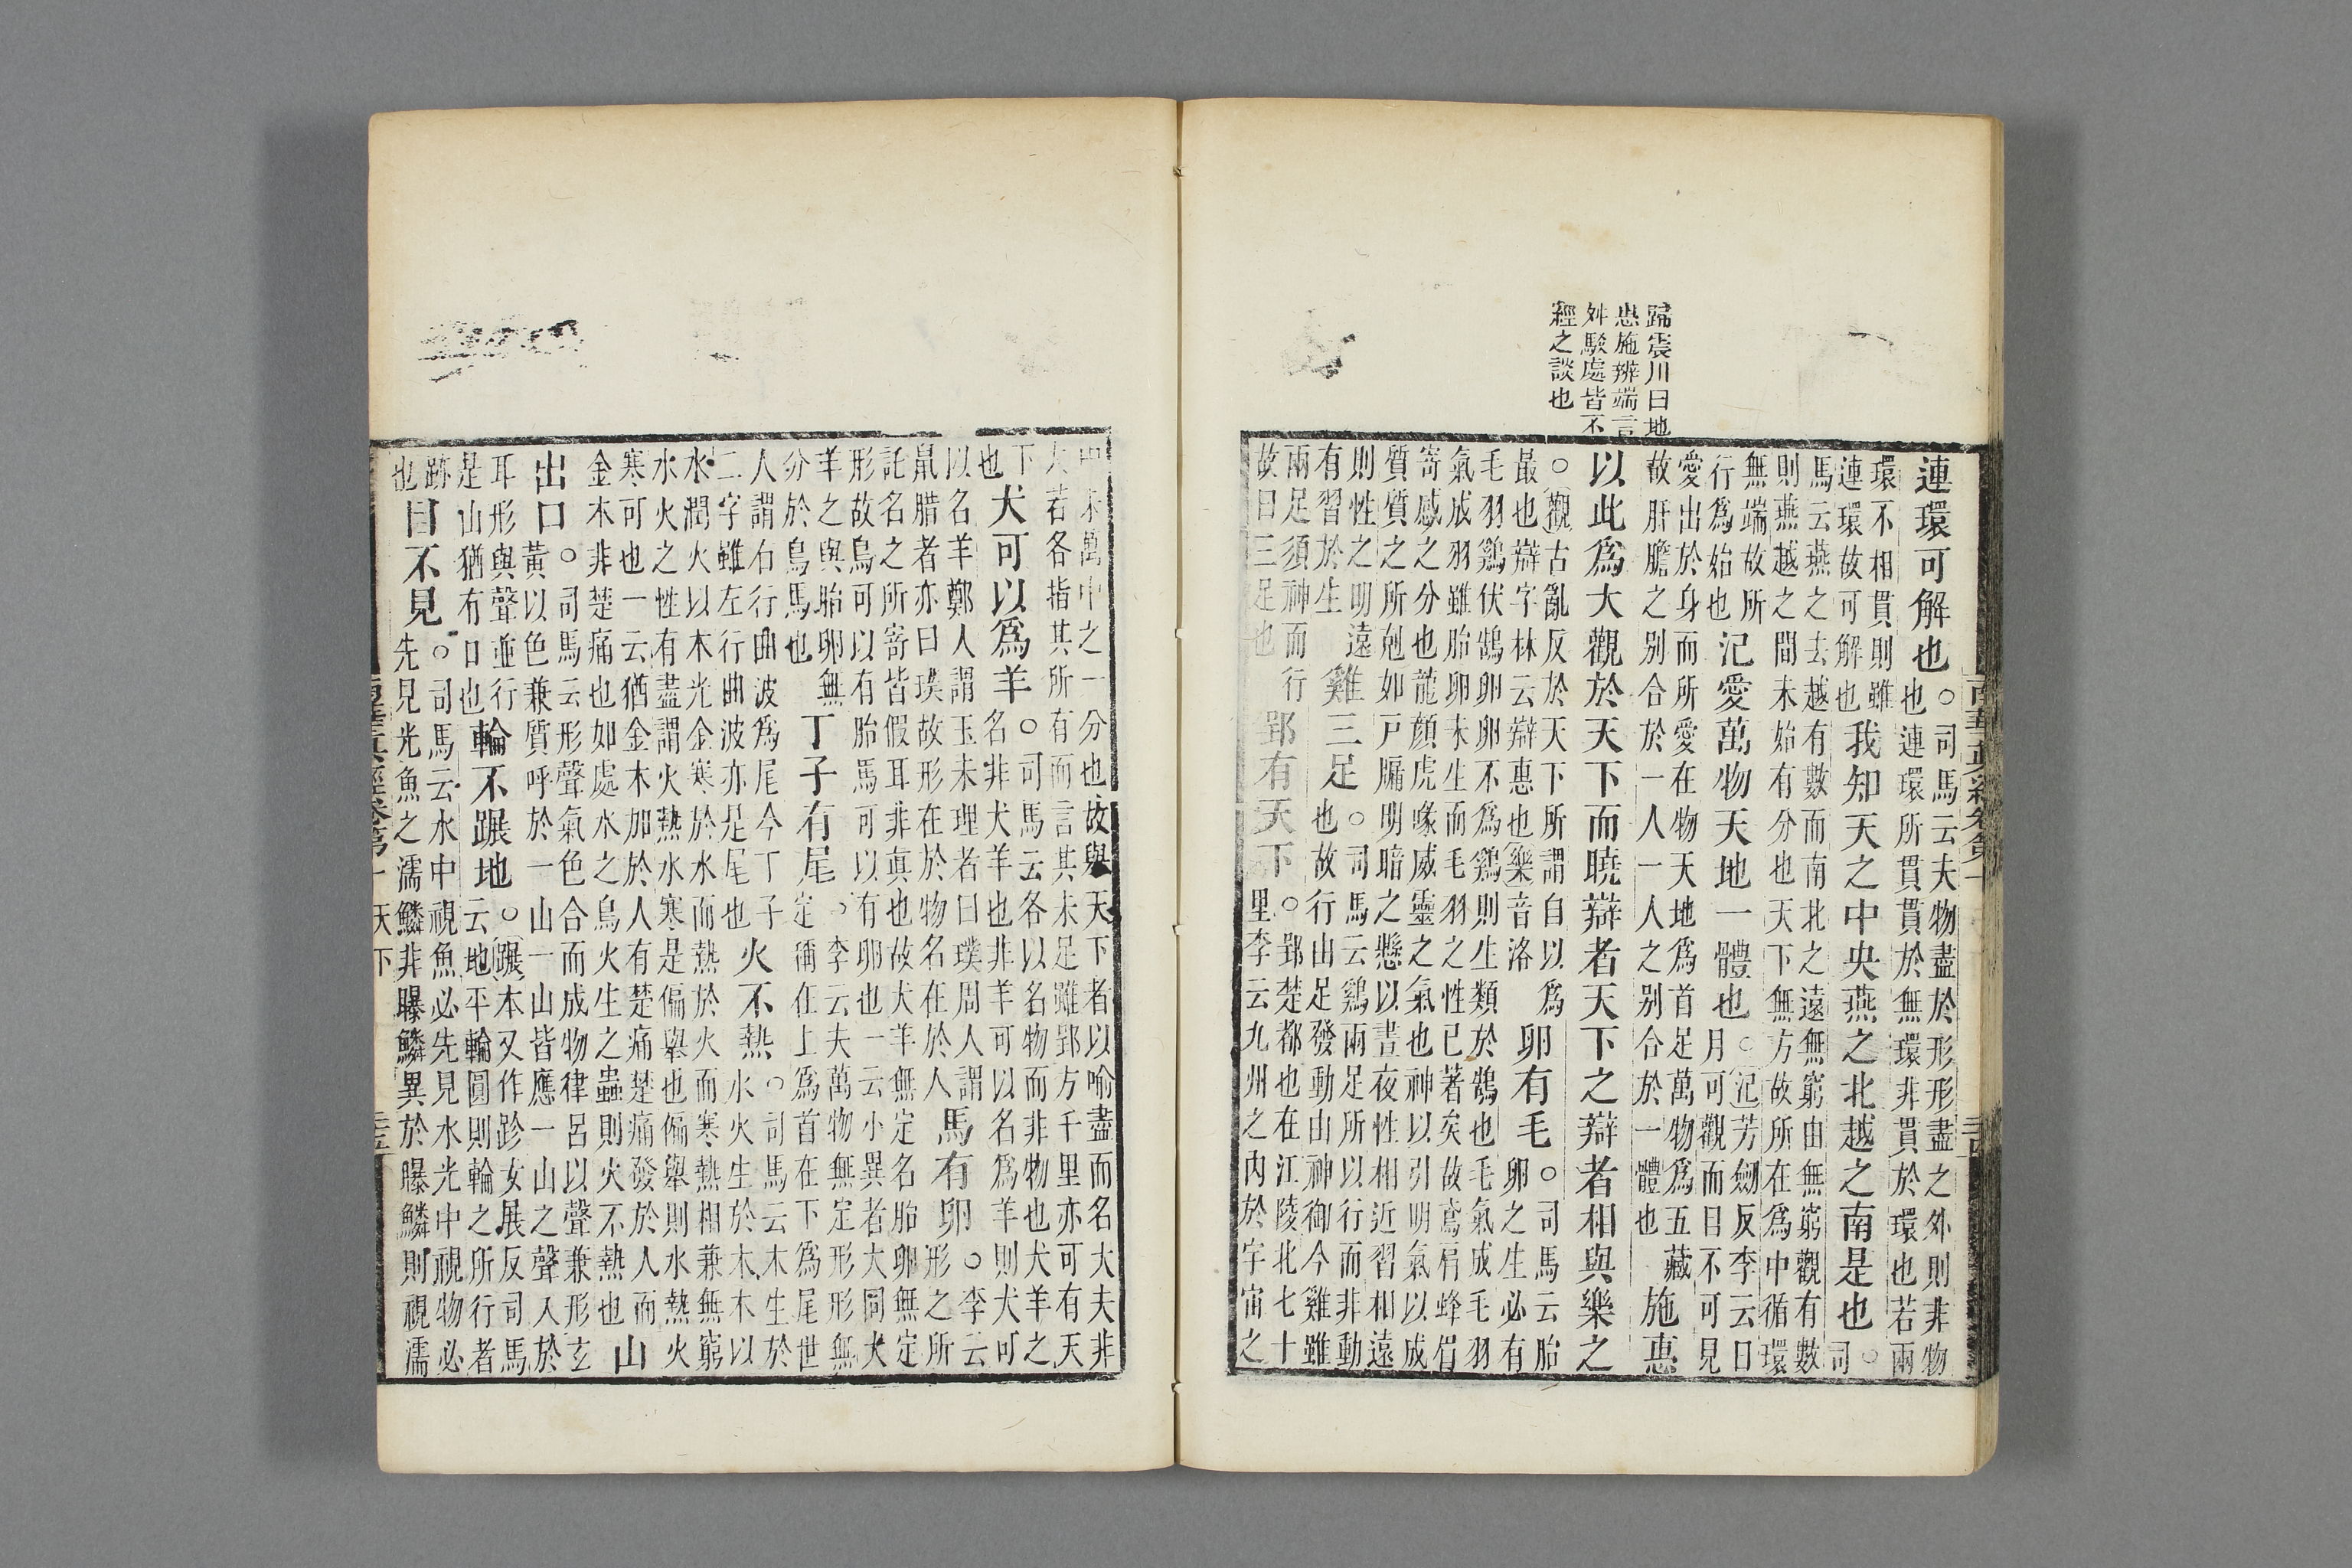 歸震川曰地
惠施辨端言
舛駁處皆不
經之談也
南華眞經卷第十
連環可解也
○司馬云夫物盡於形形盡之外則非物
也連環所貫貫於無環非貫於環也若兩
環不相貫則雖
連環故可解也
我知天之中央燕之北越之南是也
○
司
馬云燕之去越有數而南北之遠無窮由無窮觀有數
則燕越之間未始有分也天下無方故所在爲中循環
無端故所
行爲始也
氾愛萬物天地一體也
○氾芳劒反李云日
月可觀而目不可見
愛出於身而所愛在物天地爲首足萬物爲五藏
故肝膽之别合於一人一人之别合於一體也
施惠
以此爲大觀於天下而曉辯者天下之辯者相與樂之
○觀古亂反於天下所謂自以爲
最也辯字林云辯惠也樂音洛
卵有毛
○司馬云胎
卵之生必有
毛羽鷄伏鵠卵卵不爲鷄則生類於鵠也毛氣成毛羽
氣成羽雖胎卵未生而毛羽之性已著矣故鳶肩蜂目
寄感之分也龍顏虎喙威靈之氣也神以引明氣以成
質質之所剋如戸牖明暗之懸以晝夜性相近習相遠
則性之明遠
有習於生
雞三足
○司馬云鷄兩足所以行而非動
也故行由足發動由神御今雞雖
兩足須神而行
故曰三足也
郢有天下
○郢楚都也在江陵北七十
里李云九州之内於宇宙之
中未萬中之一分也故舉天下者以喻盡而名大夫非
大若各指其所有而言其未足雖郢方千里亦可有天
下
也
犬可以爲羊
○司馬云各以名物而非物也犬羊之
名非犬羊也非羊可以名爲羊則犬可
以名羊鄭人謂玉未理者曰璞周人謂
鼠腊者亦曰璞故形在於物名在於人
馬有卵
○李云
形之所
託名之所寄皆假耳非真也故犬羊無定名胎卵無定
形故鳥可以有胎馬可以有卵也一云小異者大同犬
羊之與胎卵無
分於鳥馬也
丁子有尾
○李云夫萬物無定形形無
定稱在上爲首在下爲尾世
人謂右行曲波爲尾今丁子
二字雖左行曲波亦是尾也
火不熱
○司馬云木生於
水火生於木木以
水潤火以木光金寒於水而熱於火而寒熱相兼無窮
水火之性有盡謂火熱水寒是偏舉也偏舉則水熱火
寒可也一云猶金木加於人有楚痛楚痛發於人而
金木非楚痛也如處火之鳥火生之蟲則火不熱也
山
出口
○司馬云形聲氣色合而成物律呂以聲兼形玄
黃以色兼質呼於一山一山皆應一山之聲入於
耳形與聲並行
是山猶有口也
輪不蹍地
○蹍本又作跈女展反司馬
云地平輪圓則輪之所行者
跡
也
目不見
○司馬云水中視魚必先見水光中視物必
先見光魚之濡鱗非曝鱗異於曝鱗則視濡
卷第十 天下